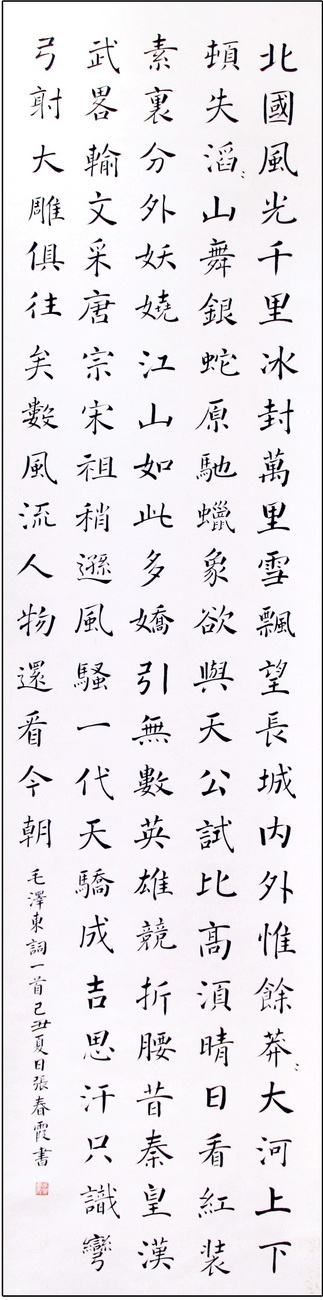 北國風光千里冰封萬里雪飄望長城内外惟餘莽〻大河上下
頓失滔〻山舞銀蛇原馳蠟象欲與天公試比高湏晴日看紅装
素裏分外妖嬈江山如此多嬌引無數英雄競折腰昔秦皇漢
武畧輸文采唐宗宋祖稍遜風騷一代天驕成吉思汗只識彎
弓射大雕俱往矣數風流人物還看今朝 毛澤東詞一首己丑夏日張春霞書